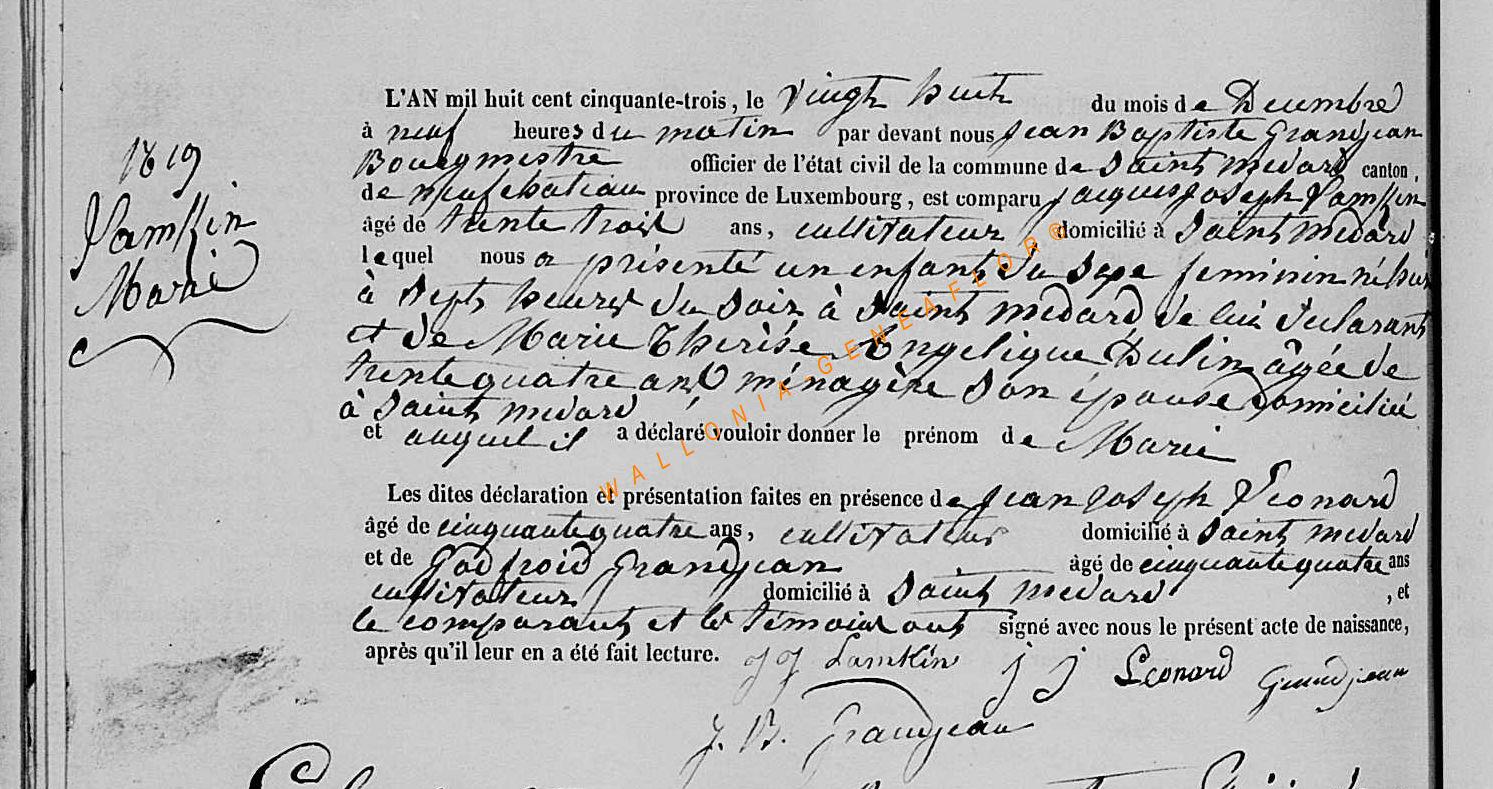 N° 19
Lamkin
Marie
L'AN mil huit cent cinquante-trois, le vingt huit du mois de Decembre
à neuf heures du matin par devant nous Jean Baptiste Grandjean
Bourgmestre officier de l'état civil de la commune de Saint medard canton,
de neufchateau province de Luxembourg, est comparu jacques joseph Lamkin
âgé de trente trois ans, cultivateur domicilié à Saint medard
lequel nous a présenté un enfant du sexe feminin né hier
à sept heures du soir à Saint medard de lui déclarant
et de Marie Thérèse Angelique Dulin âgée de
trente quatre ans ménagère son épouse domiciliée
à Saint medard
et auquel il a déclaré vouloir donner le prénom de Marie
Les dites déclaration et présentation faites en présence de Jean joseph Leonard
âgé de cinquante quatre ans, cultivateur domicilié à Saint medard
et de Godfroid Grandjean âgé de cinquante quatre ans
cultivateur domicilié à Saint medard, et
le comparant et les témoins ont signé avec nous le présent acte de naissance,
après qu'il leur en a été fait lecture. jj Lamkin j j Leonard Grandjean
J. B. Grandjean
WALLONIA-GENEAFLOR®